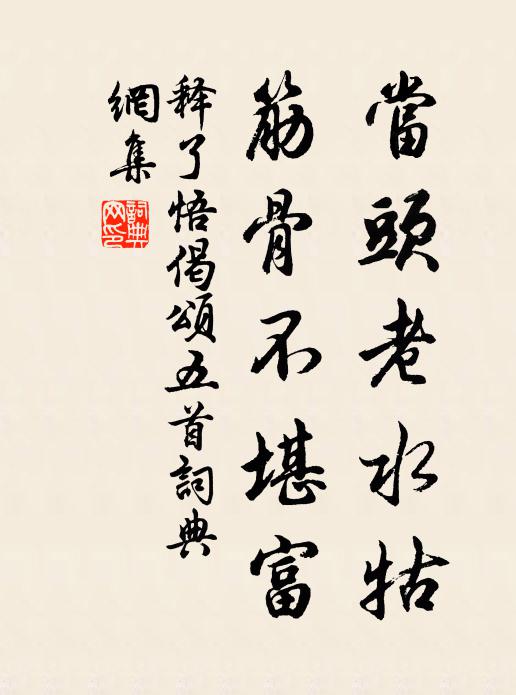 當頭老水牯
筋骨不堪富
释了悟偈頌五首詞典
網集
詞典
网印